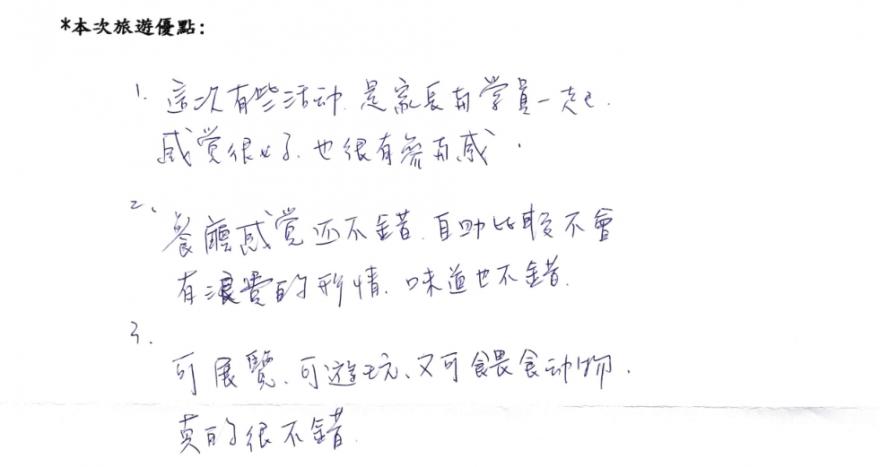 *本次旅遊優點:
1. 這次有些活动.是家長与学員一起.
感觉很好.也很有參与感.
2、
餐廳感觉还不錯.自助比較不會
有浪費的形情.味道也不錯.
3.
可展覽、可遊玩、又可餵食动物.
真的很不錯.